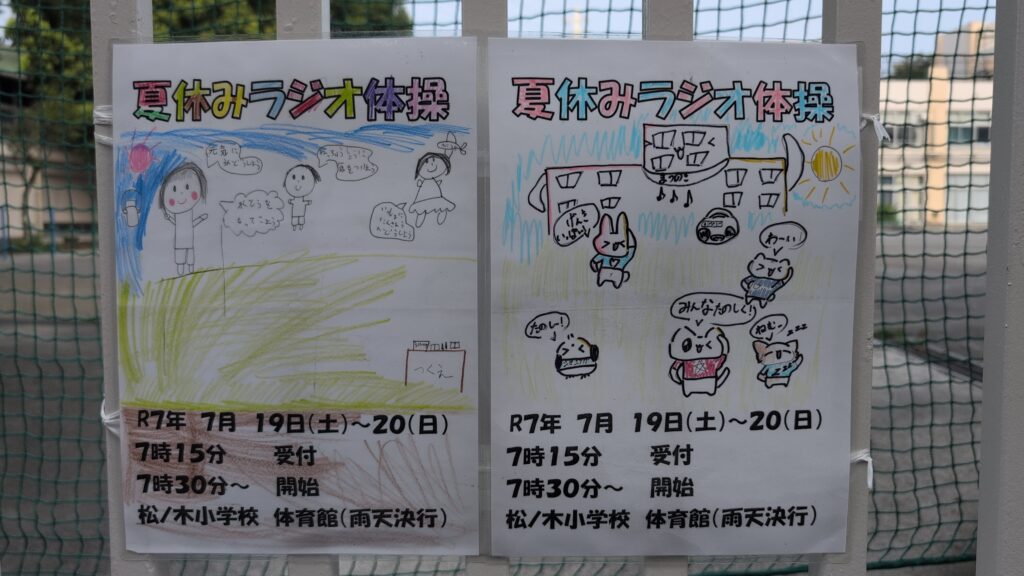 夏休みラジオ体操
つくえ
R7年 7月 19日(土)～20(日)
7時15分 受付
7時30分～ 開始
松ノ木小学校 体育館(雨天決行)
夏休みラジオ体操
まつのこ
わーい
みんなたのしく!
たのしー!
ねむー
zzz
R7年 7月 19日(土)～20(日)
7時15分 受付
7時30分～ 開始
松ノ木小学校 体育館(雨天決行)